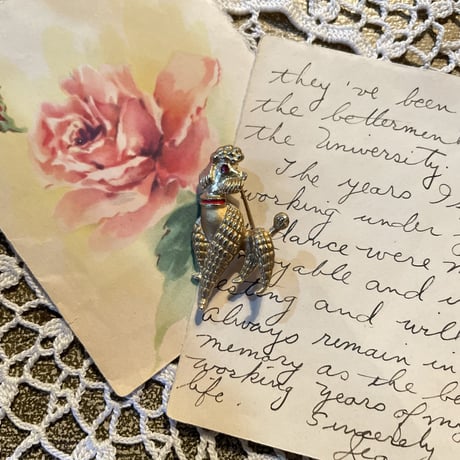 they've been
the betterment
the University.
The years I s
working under
dance were m
yable and u
esting and will
always remain in
memory as the be
working years of my
life.
Sincerely